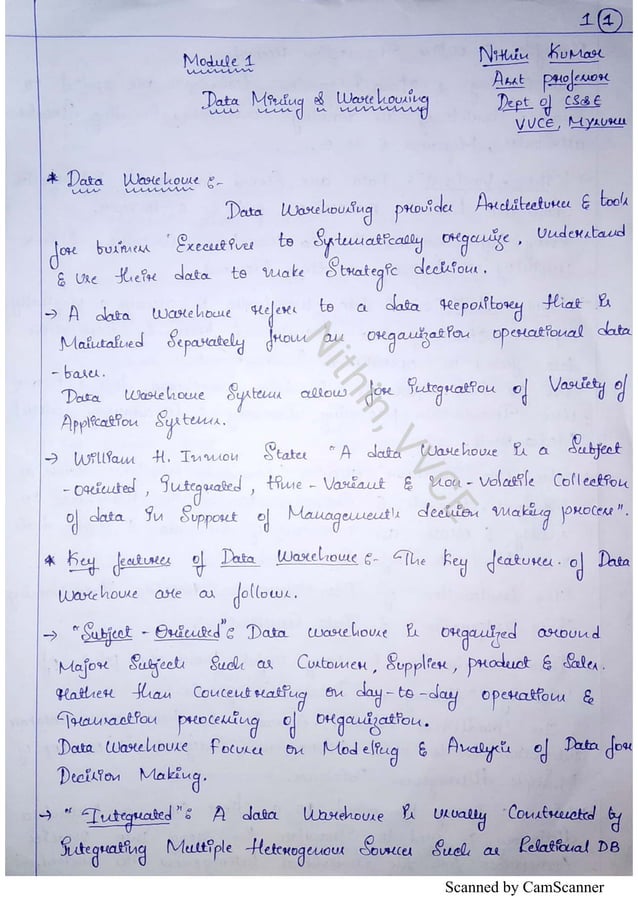 1 1
Module 1
Nithin Kumar
Asst professor
Data Mining & Warehousing
Dept of CS&E
VVCE, Mysuru
* Data Warehouse :-
Data Warehousing provides Architectures & tools
for business Executives to Systematically organize, Understand
& use their data to make Strategic decisions.
→ A data Warehouse refers to a data repository that is
Maintained Separately from an organization operational data
-bases.
Data Warehouse Systems allow for Integration of Variety of
Application Systems.
→ William H. Inmon States "A data Warehouse is a Subject
-oriented, Integrated, time-Variant & non-volatile Collection
of data in Support of Management's decision making process".
* Key features of Data Warehouse :- The key features of Data
Warehouse are as follows.
→ "Subject-Oriented": Data warehouse is organized around
Major Subjects Such as Customer, Supplier, product & Sales.
rather than Concentrating on day-to-day operations &
Transaction processing of organization.
Data Warehouse Focuses on Modeling & Analysis of Data for
Decision Making.
→ "Integrated": A data Warehouse is usually Constructed by
Integrating Multiple Heterogenous Sources Such as Relational DB
Nithin, VVCE
Scanned by CamScanner